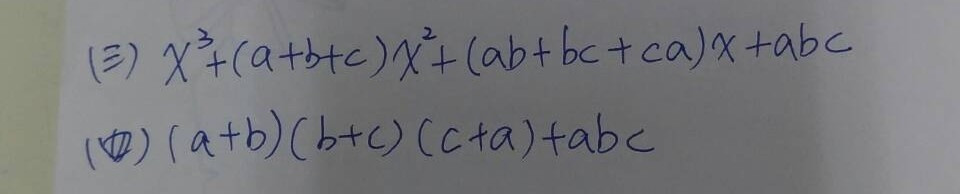 (三) x³+(a+b+c)x²+(ab+bc+ca)x+abc
(四) (a+b)(b+c)(c+a)+abc